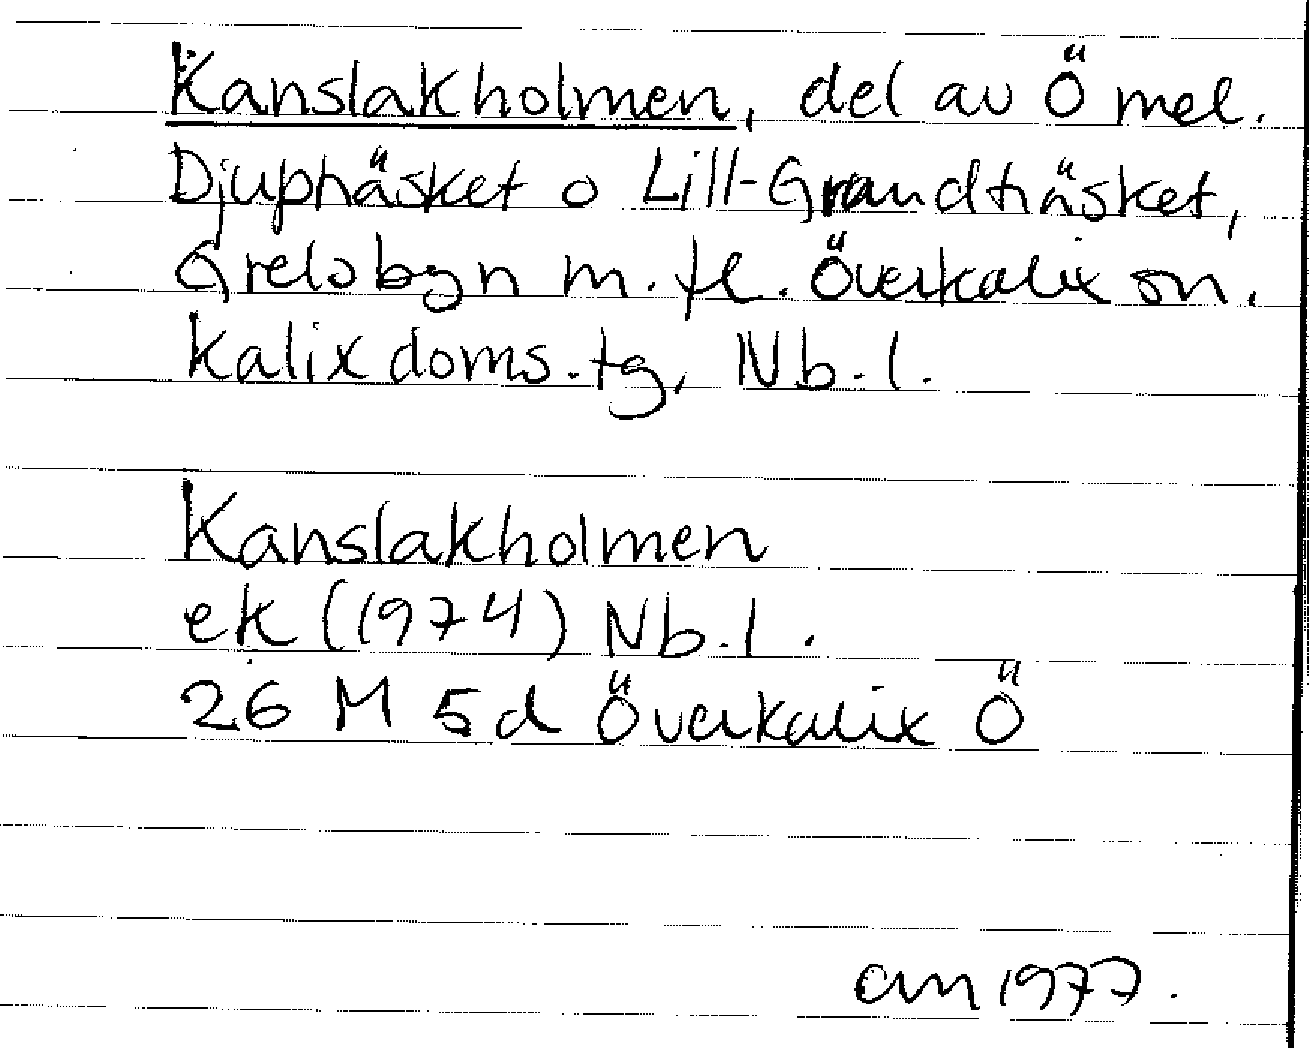 Kanslakholmen, del av Ö mel.
Djupträsket o Lill-Grandträsket,
Grelsbyn m.fl. Överkalix sn.
Kalix doms.tg, Nb.l.
Kanslakholmen
ek (1974) Nb.l.
26 M 5d Överkalix Ö
am 1977.